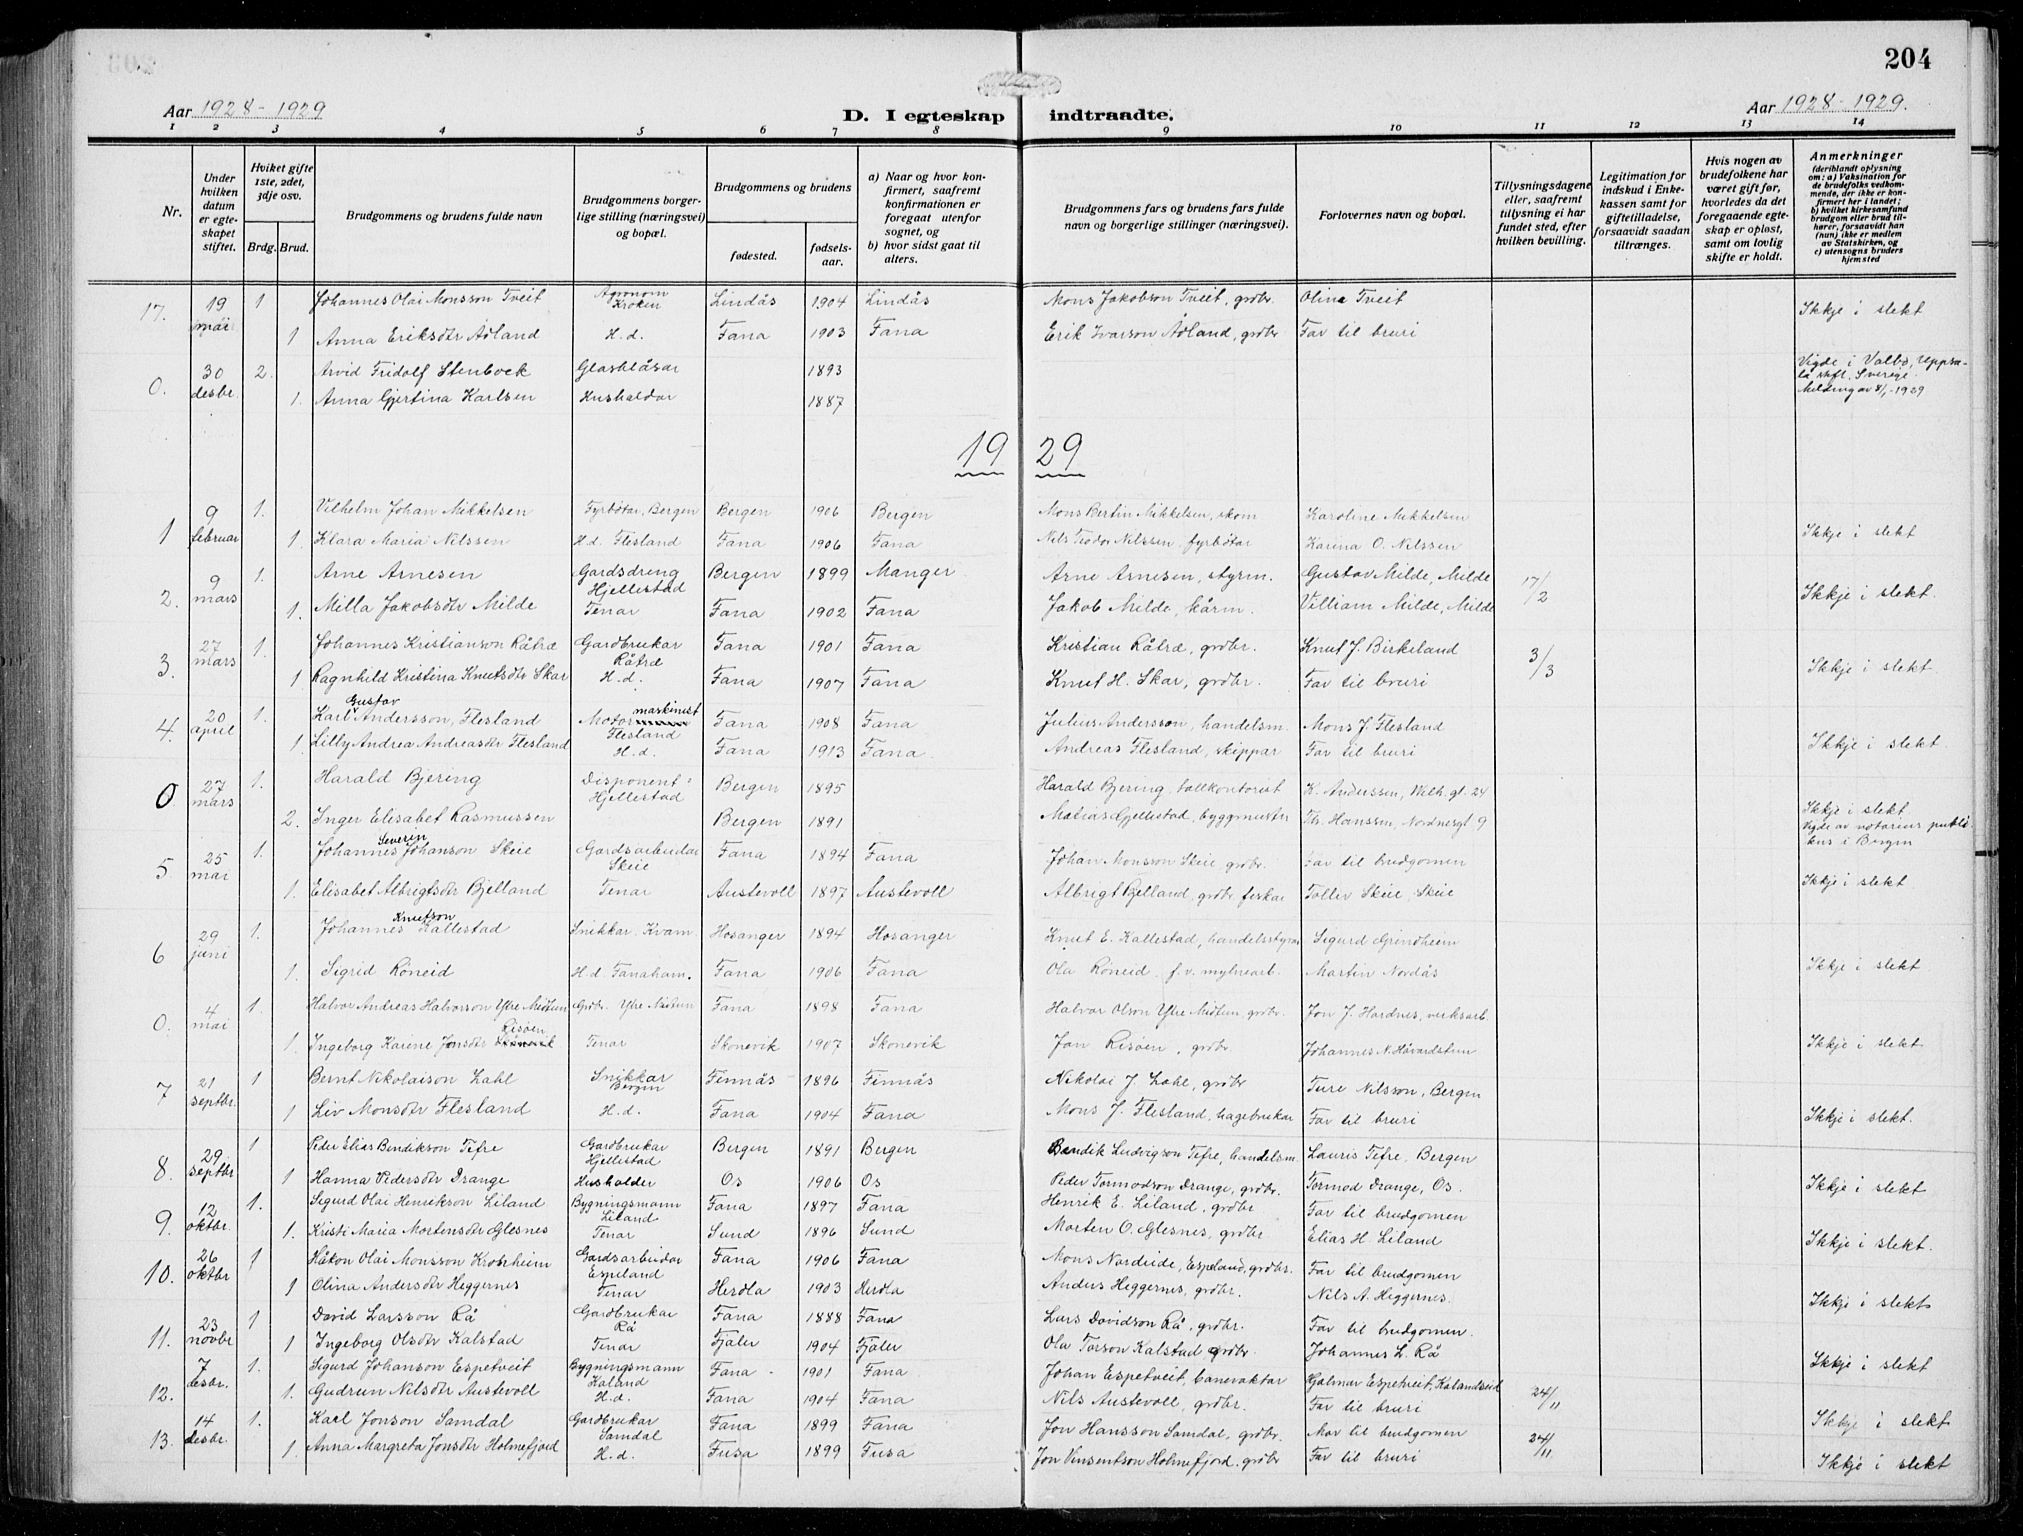 204
Aar 1928-1929
D. I egteskap indtraadte.
Aar 1928-1929.
1 2 3 4 5 6 7 8 9 10 11 12 13 14
Nr.
Under hvilken datum er egteskapet stiftet.
Hvilket gifte 1ste, 2det, 3dje osv.
Brdg. Brud.
Brudgommens og brudens fulde navn
Brudgommens borgerlige stilling (næringsvei) og bopæl.
Brudgommens og brudens
fødested.
fødselsaar.
a) Naar og hvor konfirmert, saafremt konfirmationen er foregaat utenfor sognet, og
b) hvor sidst gaat til alters.
Brudgommens fars og brudens fars fulde navn og borgerlige stillinger (næringsvei).
Forlovernes navn og bopæl.
Tillysningsdagene eller, saafremt tillysning ei har fundet sted, efter hvilken bevilling.
Legitimation for indskud i Enkekassen samt for giftetilladelse, forsaavidt saadan tiltrænges.
Hvis nogen av brudefolkene har været gift før, hvorledes da det foregaaende egteskap er opløst, samt om lovlig skifte er holdt.
Anmerkninger
(deriblandt oplysning om: a) Vaksination for de brudefolks vedkommende, der ikke er konfirmert her i landet; b) hvilket kirkesamfund brudgom eller brud tilhører, forsaavidt han (hun) ikke er medlem av Statskirken, og c) utensogns bruders hjemsted
17. 19 mai 1 Johannes Olai Monsson Tveit Agronom Kroken Lindås 1904 Lindås Mons Jakobson Tveit, grdbr. Olina Tveit Ikkje i slekt
1 Anna Eriksdtr Ådland H.d. Fana 1903 Fana Erik Ivarson Ådland, grdbr Far til bruri
0. 30 desbr. 2. Arvid Fridolf Stenbock Glasblåsar 1893 Vigde i Valbo, Uppsala stift, Sverige. Melding av 8/1-1929
1. Anna Gjertina Karlsen Hushaldar 1887
1929
1 9 februar 1. Vilhelm Johan Mikkelsen Fyrbøtar, Bergen Bergen 1906 Bergen Mons Bertin Mikkelsen, skom Karoline Mikkelsen Ikkje i slekt
1. Klara Maria Nilssen H.d. Flesland Fana 1906 Fana Nils Teodor Nilssen, fyrbøtar Karina O. Nilssen
2. 9 mars 1. Arne Arnesen Gardsdreng Hjellestad Bergen 1899 Manger Arne Arnesen, styrm. Gustav Milde, Milde 17/2 Ikkje i slekt.
1. Milla Jakobsdtr Milde Tenar Fana 1902 Fana Jakob Milde, kårm. Villiam Milde, Milde
3. 27 mars 1. Johannes Kristianson Råtræ Gardbrukar Råtræ Fana 1901 Fana Kristian Råtræ, grdbr. Knut J. Birkeland 3/3 Ikkje i slekt
1 Ragnhild Kristina Knutsdtr Skar H.d. Fana 1907 Fana Knut H. Skar, grdbr. Far til bruri
4. 20 april 1. Karl Gustav Andersson, Flesland Motormaskinist Flesland Fana 1908 Fana Julius Andersson, handelsm. Mons J. Flesland Ikkje i slekt.
1. Lilly Andrea Andreasdtr Flesland H.d. Fana 1913 Fana. Andreas Flesland, skippar Far til bruri
0 27 mars 1. Harald Bjering Disponent Hjellestad Bergen 1895 Harald Bjering, tollkontorist K. Anderssen, Wilh. gt. 24 Ikkje i slekt Vigde av notarius publikus i Bergen
2. Inger Elisabet Rasmussen Bergen 1891 Matias Gjellestad, byggmester Th. Hanssen, Nordnesgt 9
5. 25 mai 1. Johannes Severin Johanson Skeie Gardsarbeidar Skeie Fana 1894 Fana Johan Monsson Skeie grdbr. Far til brudgomen Ikkje i slekt
1. Elisabet Albrigtsdtr Bjelland Tenar Austevoll 1897 Austevoll Albrigt Bjelland, grdbr fiskar Tollev Skeie, Skeie
6 29 juni 1. Johannes Knutson Kallestad Snikkar, Kvam Hosanger 1894 Hosanger Knut E. Kallestad, handelsstyrm Sigurd Grindheim Ikkje i slekt
1. Sigrid Røneid H.d. Fanaham. Fana 1906 Fana Ola Røneid, f.v. mylnearb. Martin Nordås
0. 4 mai 1. Halvor Andreas Halvorson Ytre Midtun Grdbr. Ytre Midtun Fana 1898 Fana Halvor Olson Ytre Midtun, grdbr. Jon J. Hardnes, verksarb. Ikkje i slekt
1. Ingeborg Karine Jonsdtr Risøen Tenar Skonevik 1907 Skonevik Jon Risøen, grdbr. Johannes N. Håvardstun
7 21 septbr. 1 Bernt Nikolaison Lahl Snikkar Bergen Finnås 1896 Finnås Nikolai J. Lahl, grdbr Ture Nilsson, Bergen Ikkje i slekt.
1 Liv Monsdtr Flesland H.d. Fana 1904 Fana Mons J. Flesland, hagebrukar Far til bruri
8. 29 septbr 1 Peder Elias Bendikson Tefre Gardbrukar Hjellestad Bergen 1891 Bergen Bendik Ludvigson Tefre, handelsm. Lauris Tefre, Bergen Ikkje i slekt
1 Hanna Pedersdtr Drange Husholder Os 1906 Os Peder Tormodson Drange, grdbr. Tormod Drange, Os.
9. 12 oktbr. 1. Sigurd Olai Henrikson Liland Bygningsmann Liland Fana 1897 Fana Henrik E. Liland, grdbr. Far til brudgomen Ikkje i slekt.
1. Kristi Maria Mortensdtr Glesnes Tenar Sund 1896 Sund Morten O. Glesnes, grdbr Elias H. Liland
10. 26 oktbr 1 Håkon Olai Monsson Krohnheim Gardsarbeidar Espeland Fana 1906 Fana Mons Nordeide, Espeland, grdbr. Far til brudgomen Ikkje i slekt
1 Olina Andersdtr Heggernes Tenar Herdla 1903 Herdla Anders Heggernes, grdbr. Nils A. Heggernes.
11. 23 novbr 1 David Larsson Rå Gardbrukar Rå Fana 1888 Fana Lars Davidson Rå, grdbr. Far til brudgomen. Ikkje i slekt
1 Ingeborg Olsdtr Kalstad Tenar Fjaler 1904 Fjaler Ola Torson Kalstad grdbr. Johannes L. Rå
12. 7 desbr. 1. Sigurd Johanson Espetveit Bygningsmann Kaland Fana 1901 Fana Johan Espetveit, banevaktar Hjalmar Espetveit, Kalandseid 24/11 Ikkje i slekt
1. Gudrun Nilsdtr Austevoll H.d. Fana 1904 Fana Nils Austevoll, grdbr. Far til bruri
13. 14 desbr. 1. Karl Jonson Samdal Gardbrukar Samdal Fana 1899 Fana Jon Hansson Samdal, grdbr. Mor til brudgomen 24/11 Ikkje i slekt
1. Anna Margreta Jonsdtr Holmefjord H.d. Fusa 1899 Fusa Jon Vinsentson Holmefjord, grdbr Far til bruri